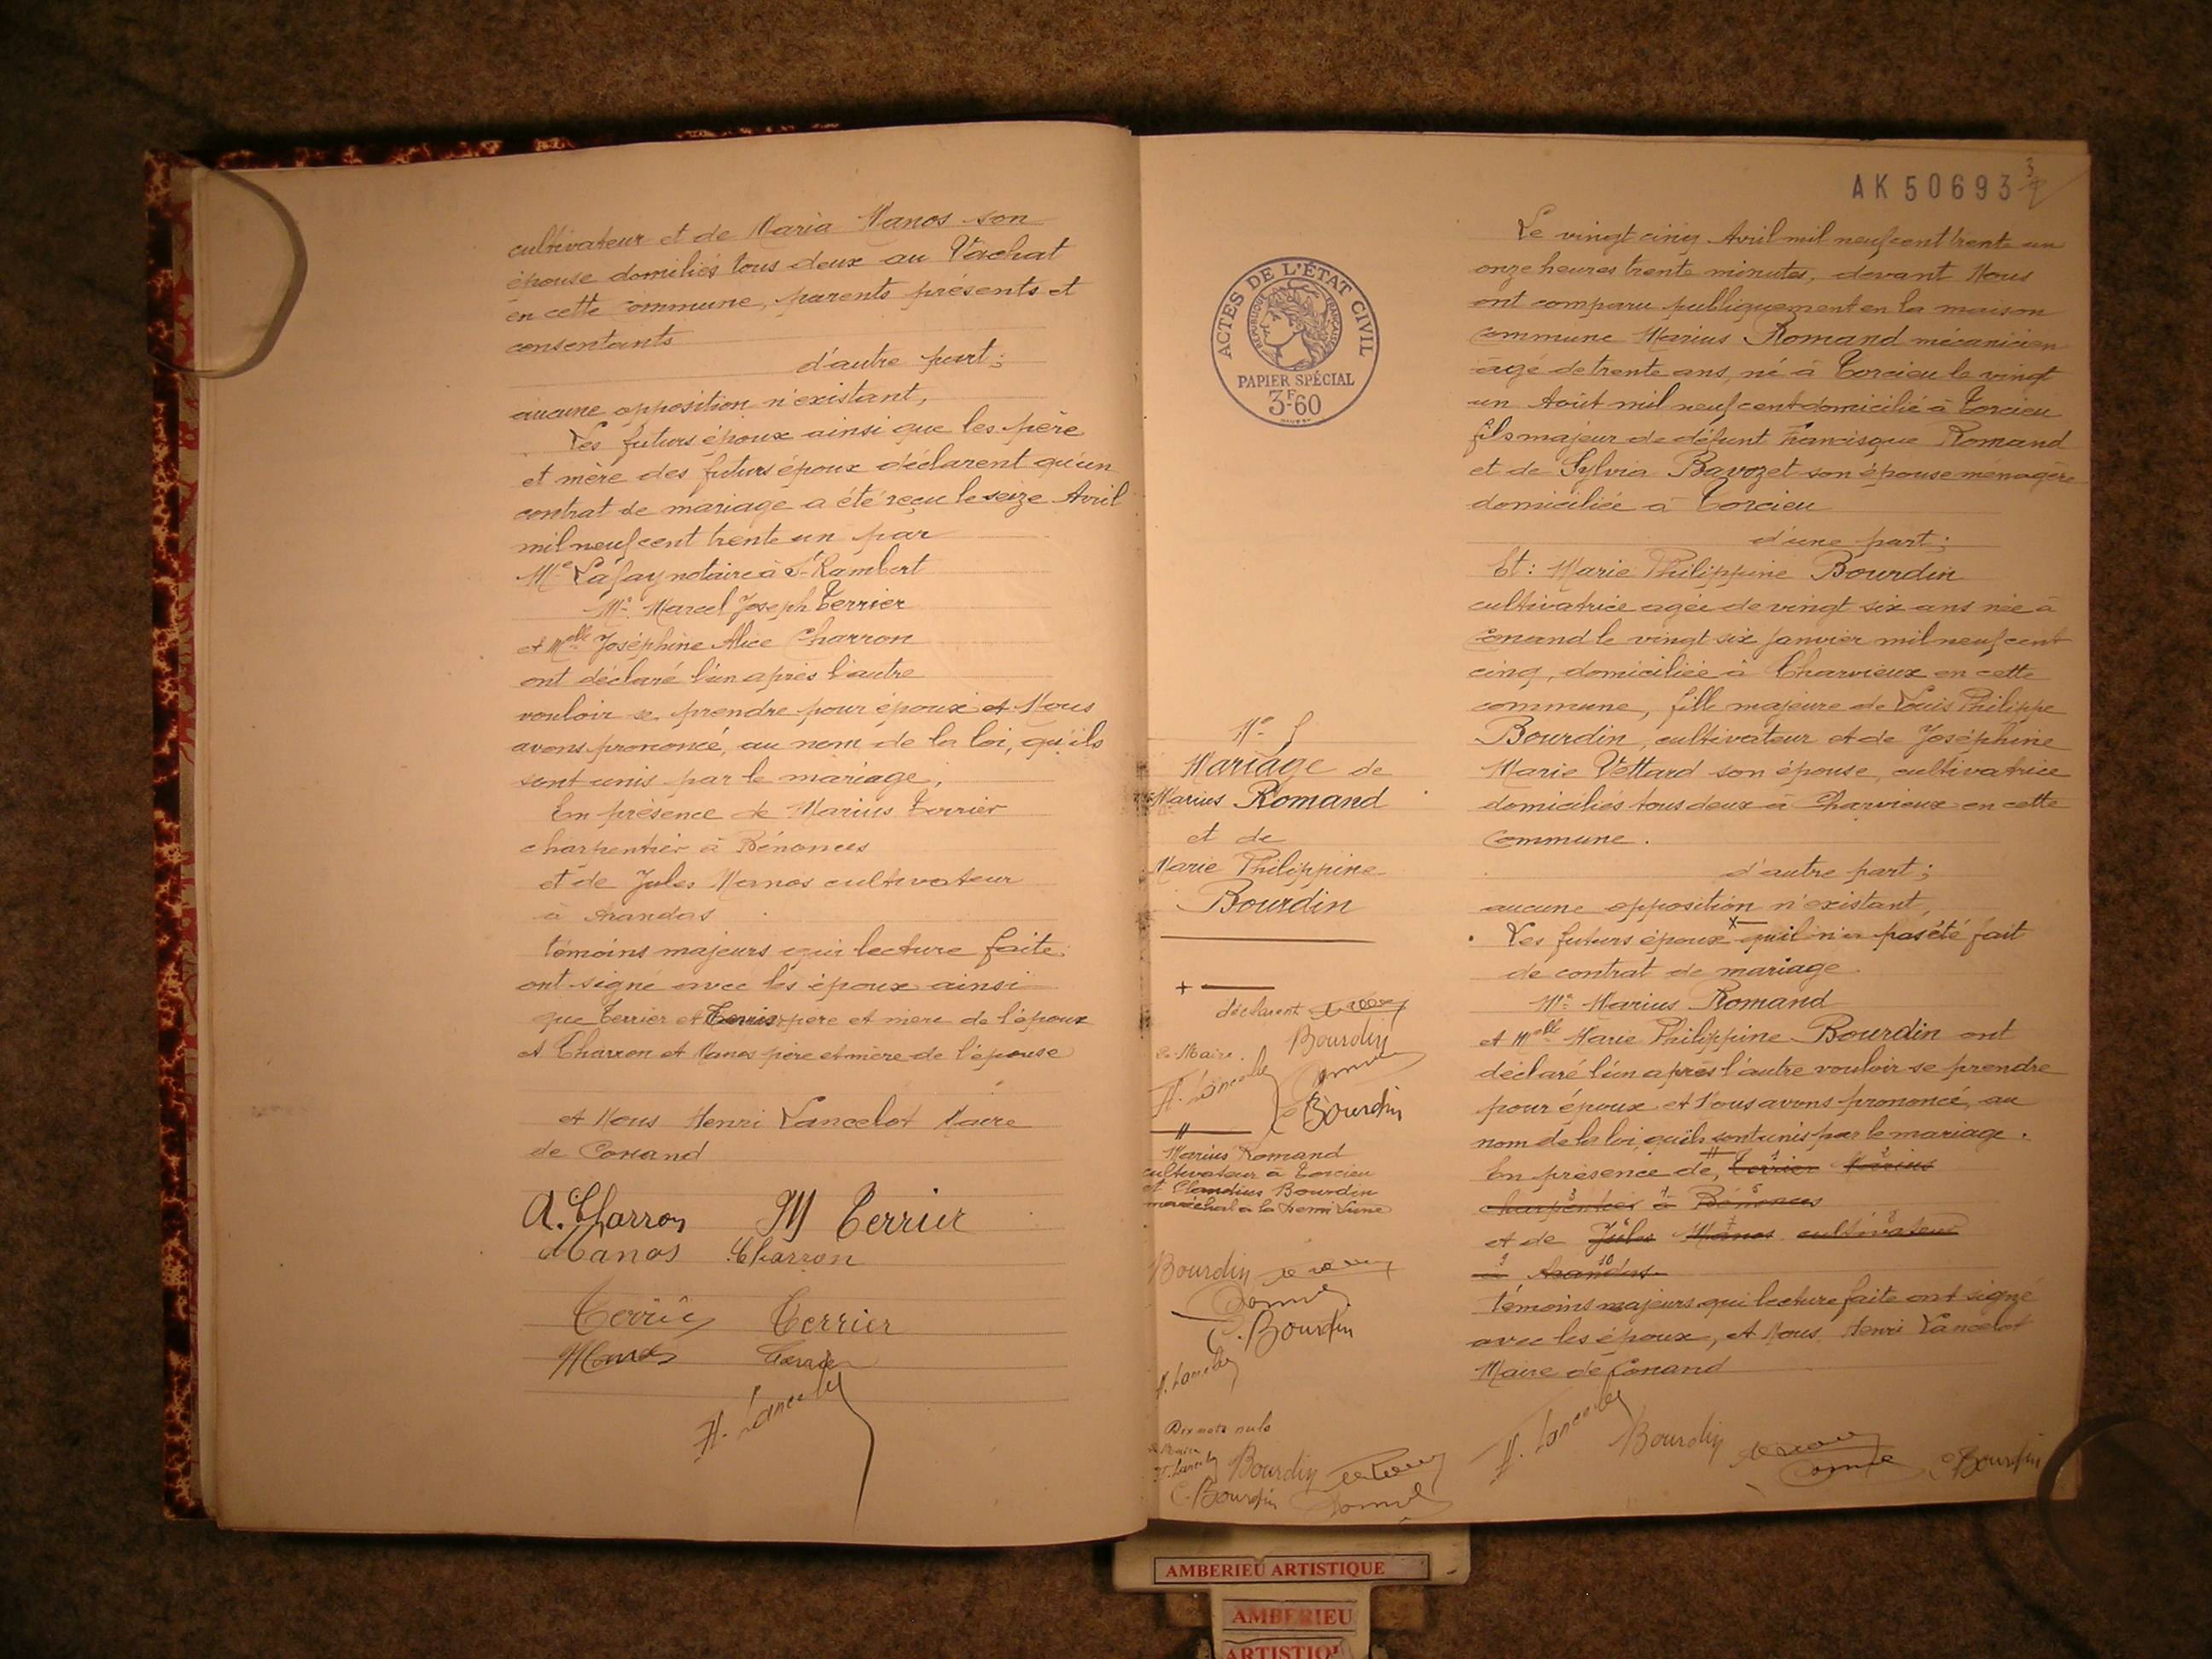 cultivateur et de Maria Manos son
épouse domiliés tous deux au Vachat
en cette commune, parents présents et
consentants
d'autre part ;
aucune opposition n'existant,
Les futurs époux ainsi que les père
et mère des futurs époux déclarent qu'un
contrat de mariage a été reçu le seize Avril
mil neuf cent trente un par
Me Lafay notaire à St Rambert
Mr. Marcel Joseph Terrier
et Melle Joséphine Alice Charron
ont déclaré l'un après l'autre
vouloir se prendre pour époux et Nous
avons prononcé, au nom de la loi, qu'ils
sont unis par le mariage,
En présence de Marius Terrier
charpentier à Bénonces
et de Jules Manos cultivateur
à Arandas
témoins majeurs qui lecture faite
ont signé avec les époux ainsi
que Terrier et père et mère de l'époux
et Charron et Manos père et mère de l'épouse
et Nous Henri Lancelot Maire
de Conand
A. Charron M Terrier
Manos Charron
Terrier
H. Lancelot
AK 50693
3
ACTES DE L'ÉTAT CIVIL
RÉPUBLIQUE FRANÇAISE
PAPIER SPÉCIAL
3F-60
N° 5
Mariage de
Marius Romand
et de
Marie Philippine
Bourdin
+
déclarent
Bourdin
le Maire.
H. Lancelot
C Bourdin
#
Marius Romand
cultivateur à Torcieu
et Claudius Bourdin
maréchal à la demi Lune
Bourdin
C. Bourdin
H. Lancelot
Dix mots nuls
le Maire
H. Lancelot Bourdin
C. Bourdin
Le vingt cinq Avril mil neuf cent trente un
onze heures trente minutes, devant Nous
ont comparu publiquement en la maison
commune Marius Romand mécanicien
âgé de trente ans, né à Torcieu le vingt
un Août mil neuf cent domicilié à Torcieu
fils majeur de défunt Francisque Romand
et de Sylvia Bavozet son épouse menagère
domiciliée à Torcieu
d'une part ;
Et : Marie Philippine Bourdin
cultivatrice agée de vingt six ans née à
Conand le vingt six Janvier mil neuf cent
cinq, domiciliée à Charvieux en cette
commune, fille majeure de Louis Philippe
Bourdin, cultivateur et de Joséphine
Marie Vettard son épouse, cultivatrice
domiciliés tous deux à Charvieux en cette
commune.
d'autre part ;
aucune opposition n'existant,
Les futurs époux x qu'il n'a pas été fait
de contrat de mariage
Mr. Marius Romand
et Melle Marie Philippine Bourdin ont
déclaré l'un après l'autre vouloir se prendre
pour époux et Nous avons prononcé, au
nom de la loi, qu'ils sont unis par le mariage.
En présence de, # Terrier Marius
charpentier à Bénonces
et de Jules Manos cultivateur
à Arandas
témoins majeurs qui lecture faite ont signé
avec les époux, et Nous Henri Lancelot
Maire de Conand
H. Lancelot Bourdin C Bourdin
AMBERIEU ARTISTIQUE
AMBERIEU